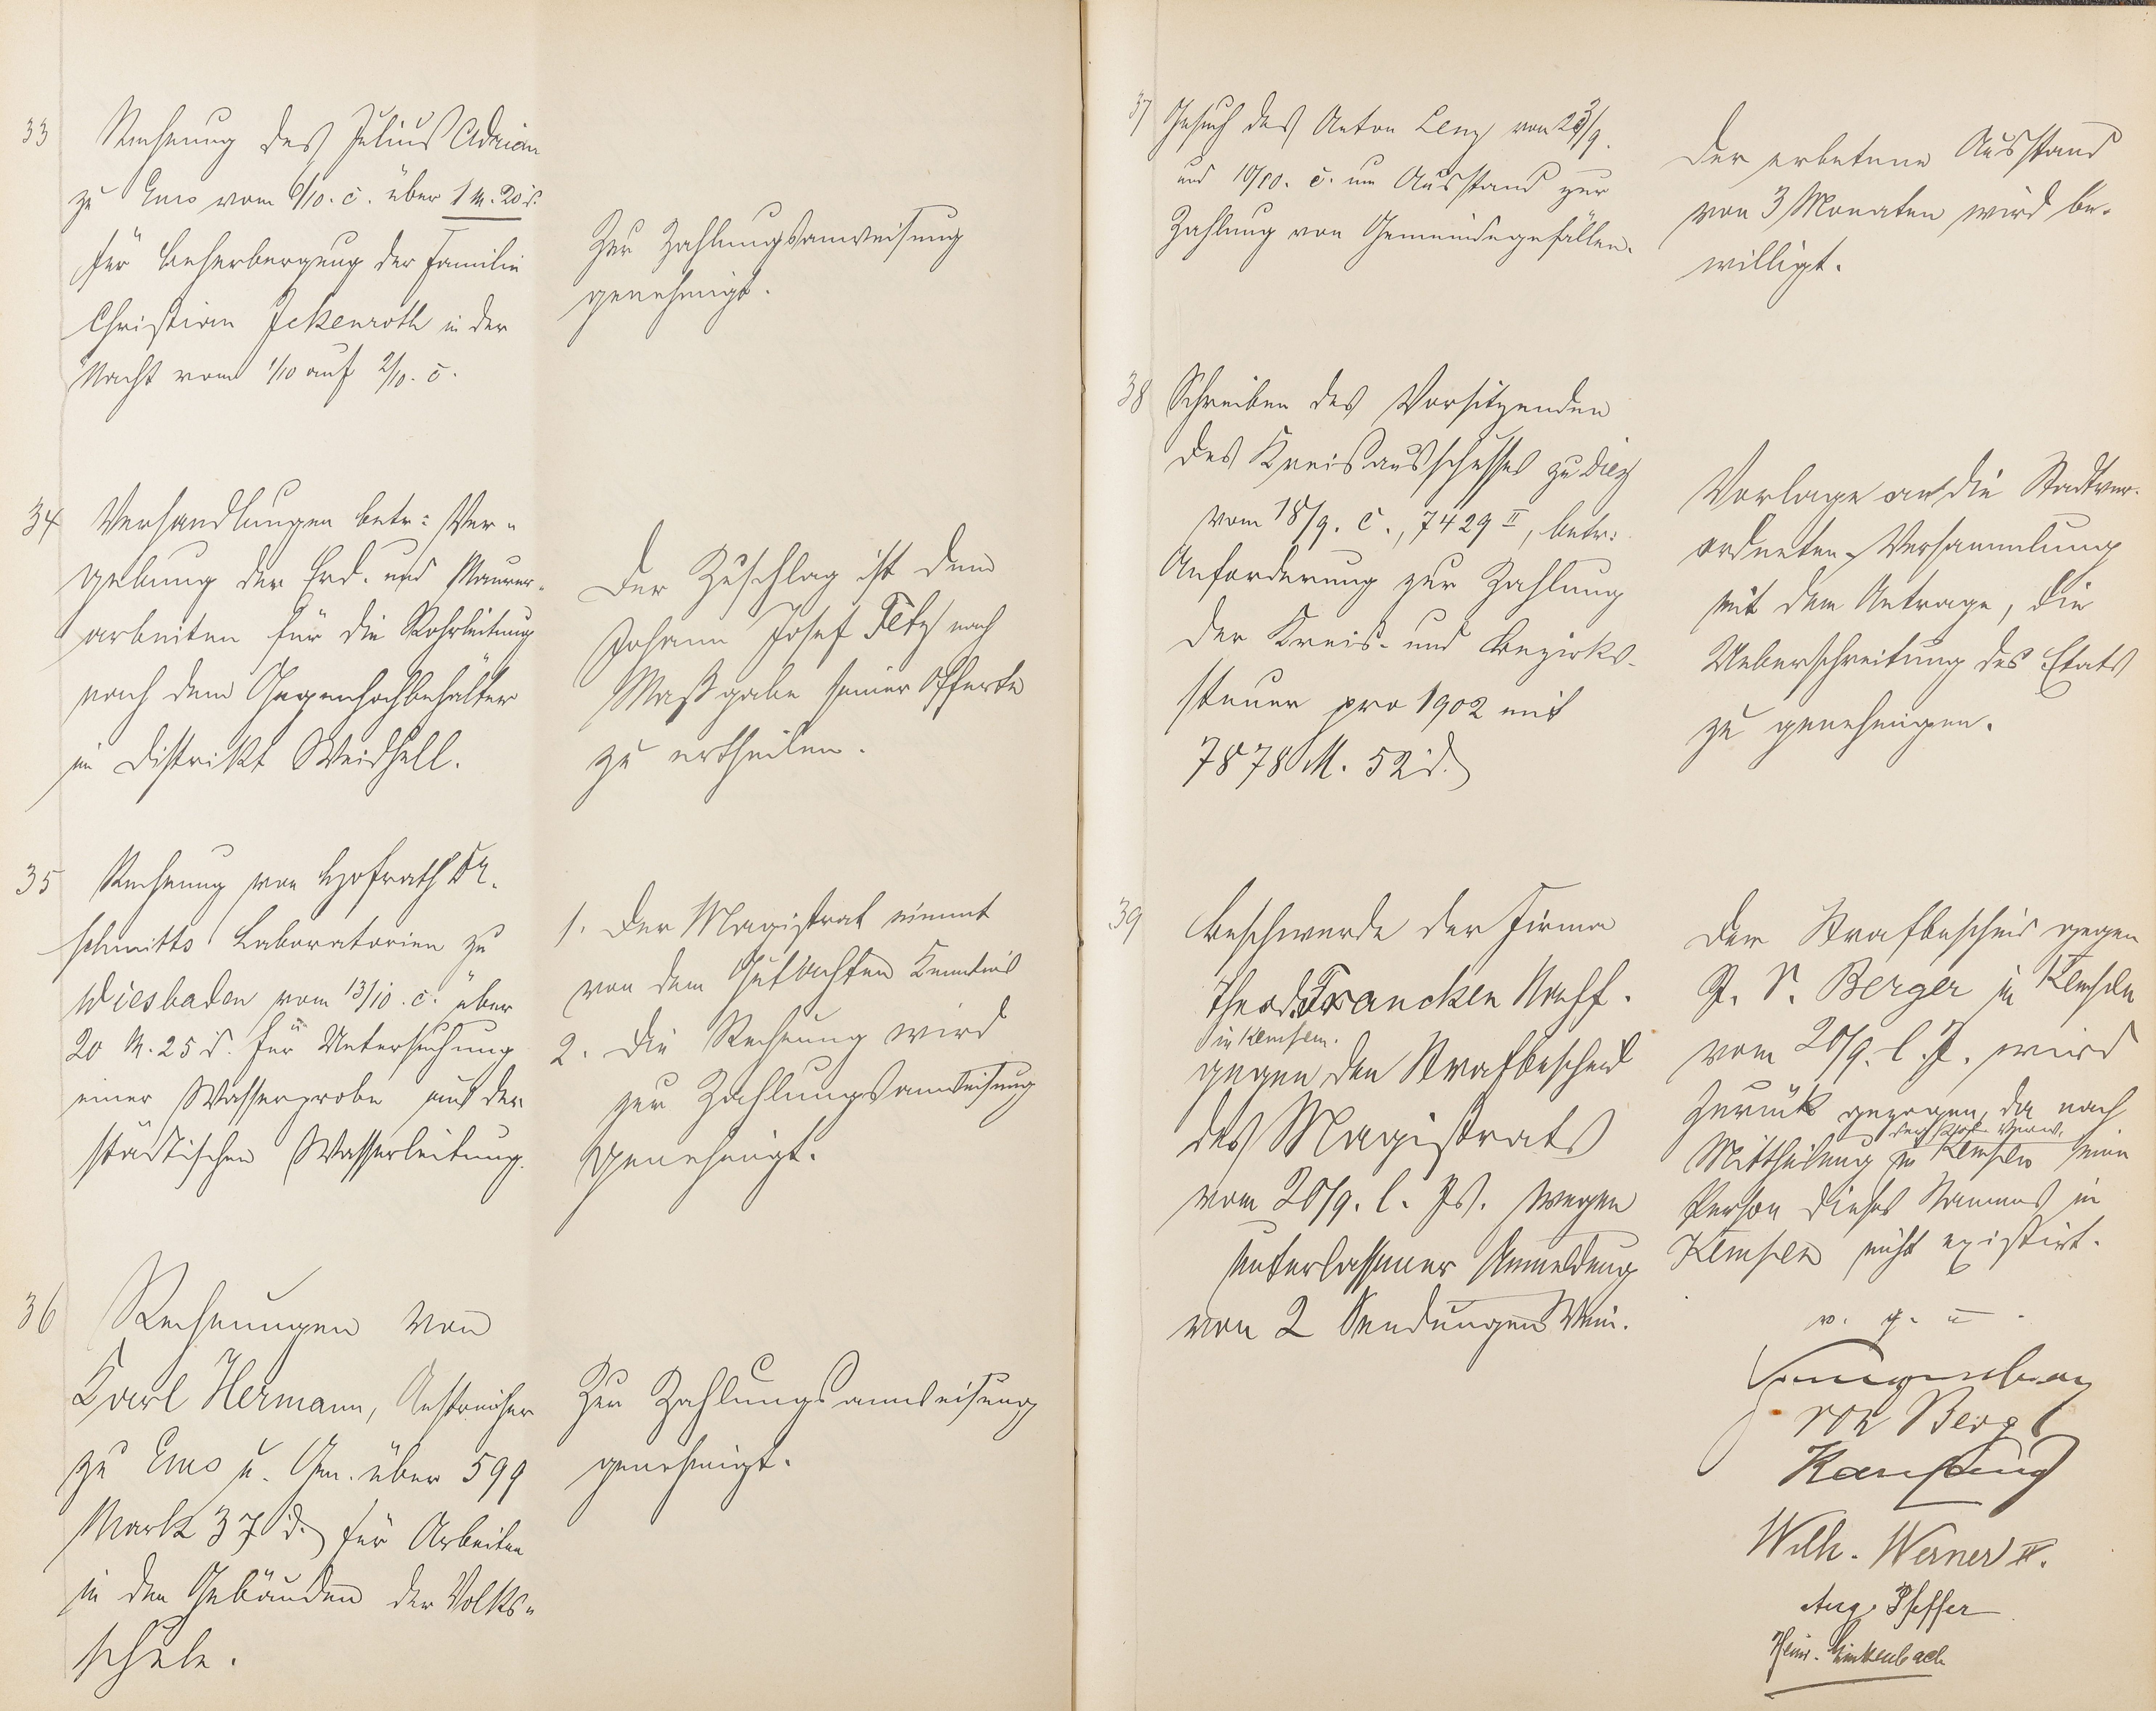 33 Rechnung des Julius Adrian
zu Ems vom 6/10. c. über 1 M. 20 d.
für Beherbergung der Familie
Christian Jckenroth in der
Nacht vom 1/10 auf 2/10. c.
Zur Zahlungsanweisung
genehmigt.
34 Verhandlungen betr: Ver-
gebung der Erd- und Maurer-
arbeiten für die Rohrleitung
nach dem Gegenhochbehälter
im Distrikt Weidhell.
Der Zuschlag ist dem
Johann Josef Fetz nach
Maßgabe seiner Offerte
zu ertheilen.
35 Rechnung von Hofrath Dr.
Schmitts Laboratorien zu
Wiesbaden vom 13/10. c. über
20 M. 25 d. für Untersuchung
einer Wasserprobe aus der
städtischen Wasserleitung.
1. Der Magistrat nimmt
von dem Gutachten Kenntnis
2. Die Rechnung wird
zur Zahlungsanweisung
genehmigt.
36 Rechnungen von
Karl Hermann, Anstreicher
zu Ems u. Gen. über 599
Mark 37 d. für Arbeiten
in den Gebäuden der Volks-
schule.
Zur Zahlungsanweisung
genehmigt.
37 Gesuch des Anton Lenz von 23/9.
und 10/10. c. um Ausstand zur
Zahlung von Gemeindegefällen.
Der erbetene Ausstand
von 3 Monaten wird be-
willigt.
38 Schreiben des Vorsitzenden
des Kreisausschusses zu Diez
vom 18/9. c., 7429 II, betr:
Anforderung zur Zahlung
der Kreis- und Bezirks-
steuer pro 1902 mit
7878 M. 52 d.
Vorlage an die Stadtver-
ordneten-Versammlung
mit dem Antrage, die
Ueberschreitung des Etats
zu genehmigen.
39 Beschwerde der Firma
Theod. Francken Nachf.
in Kempen.
gegen den Strafbescheid
des Magistrats
vom 20/9. l. Js. wegen
unterlassener Anmeldung
von 2 Sendungen Wein.
Der Strafbescheid gegen
Berger in Kempen
vom 20/9. l. J. wird
zurück gezogen, da nach
Mittheilung der Pol. Verw.
in Kempen eine
Person dieses Namens in
Kempen nicht existirt.
v. g. u.
von Berg
Wilh. Werner II.
Aug. Pfeffer
Heinr. Linkenbach